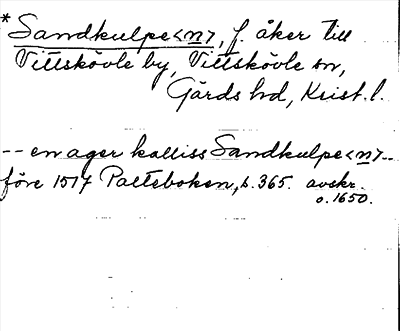 * Sandkulpe<n>, f. åker till
Vittskövle by, Vittskövle sn,
Gärds hd, Krist. l.
-- en ager kalliss Sandkulpe<n> --
före 1517 Palteboken, s. 365. avskr.
o. 1650.